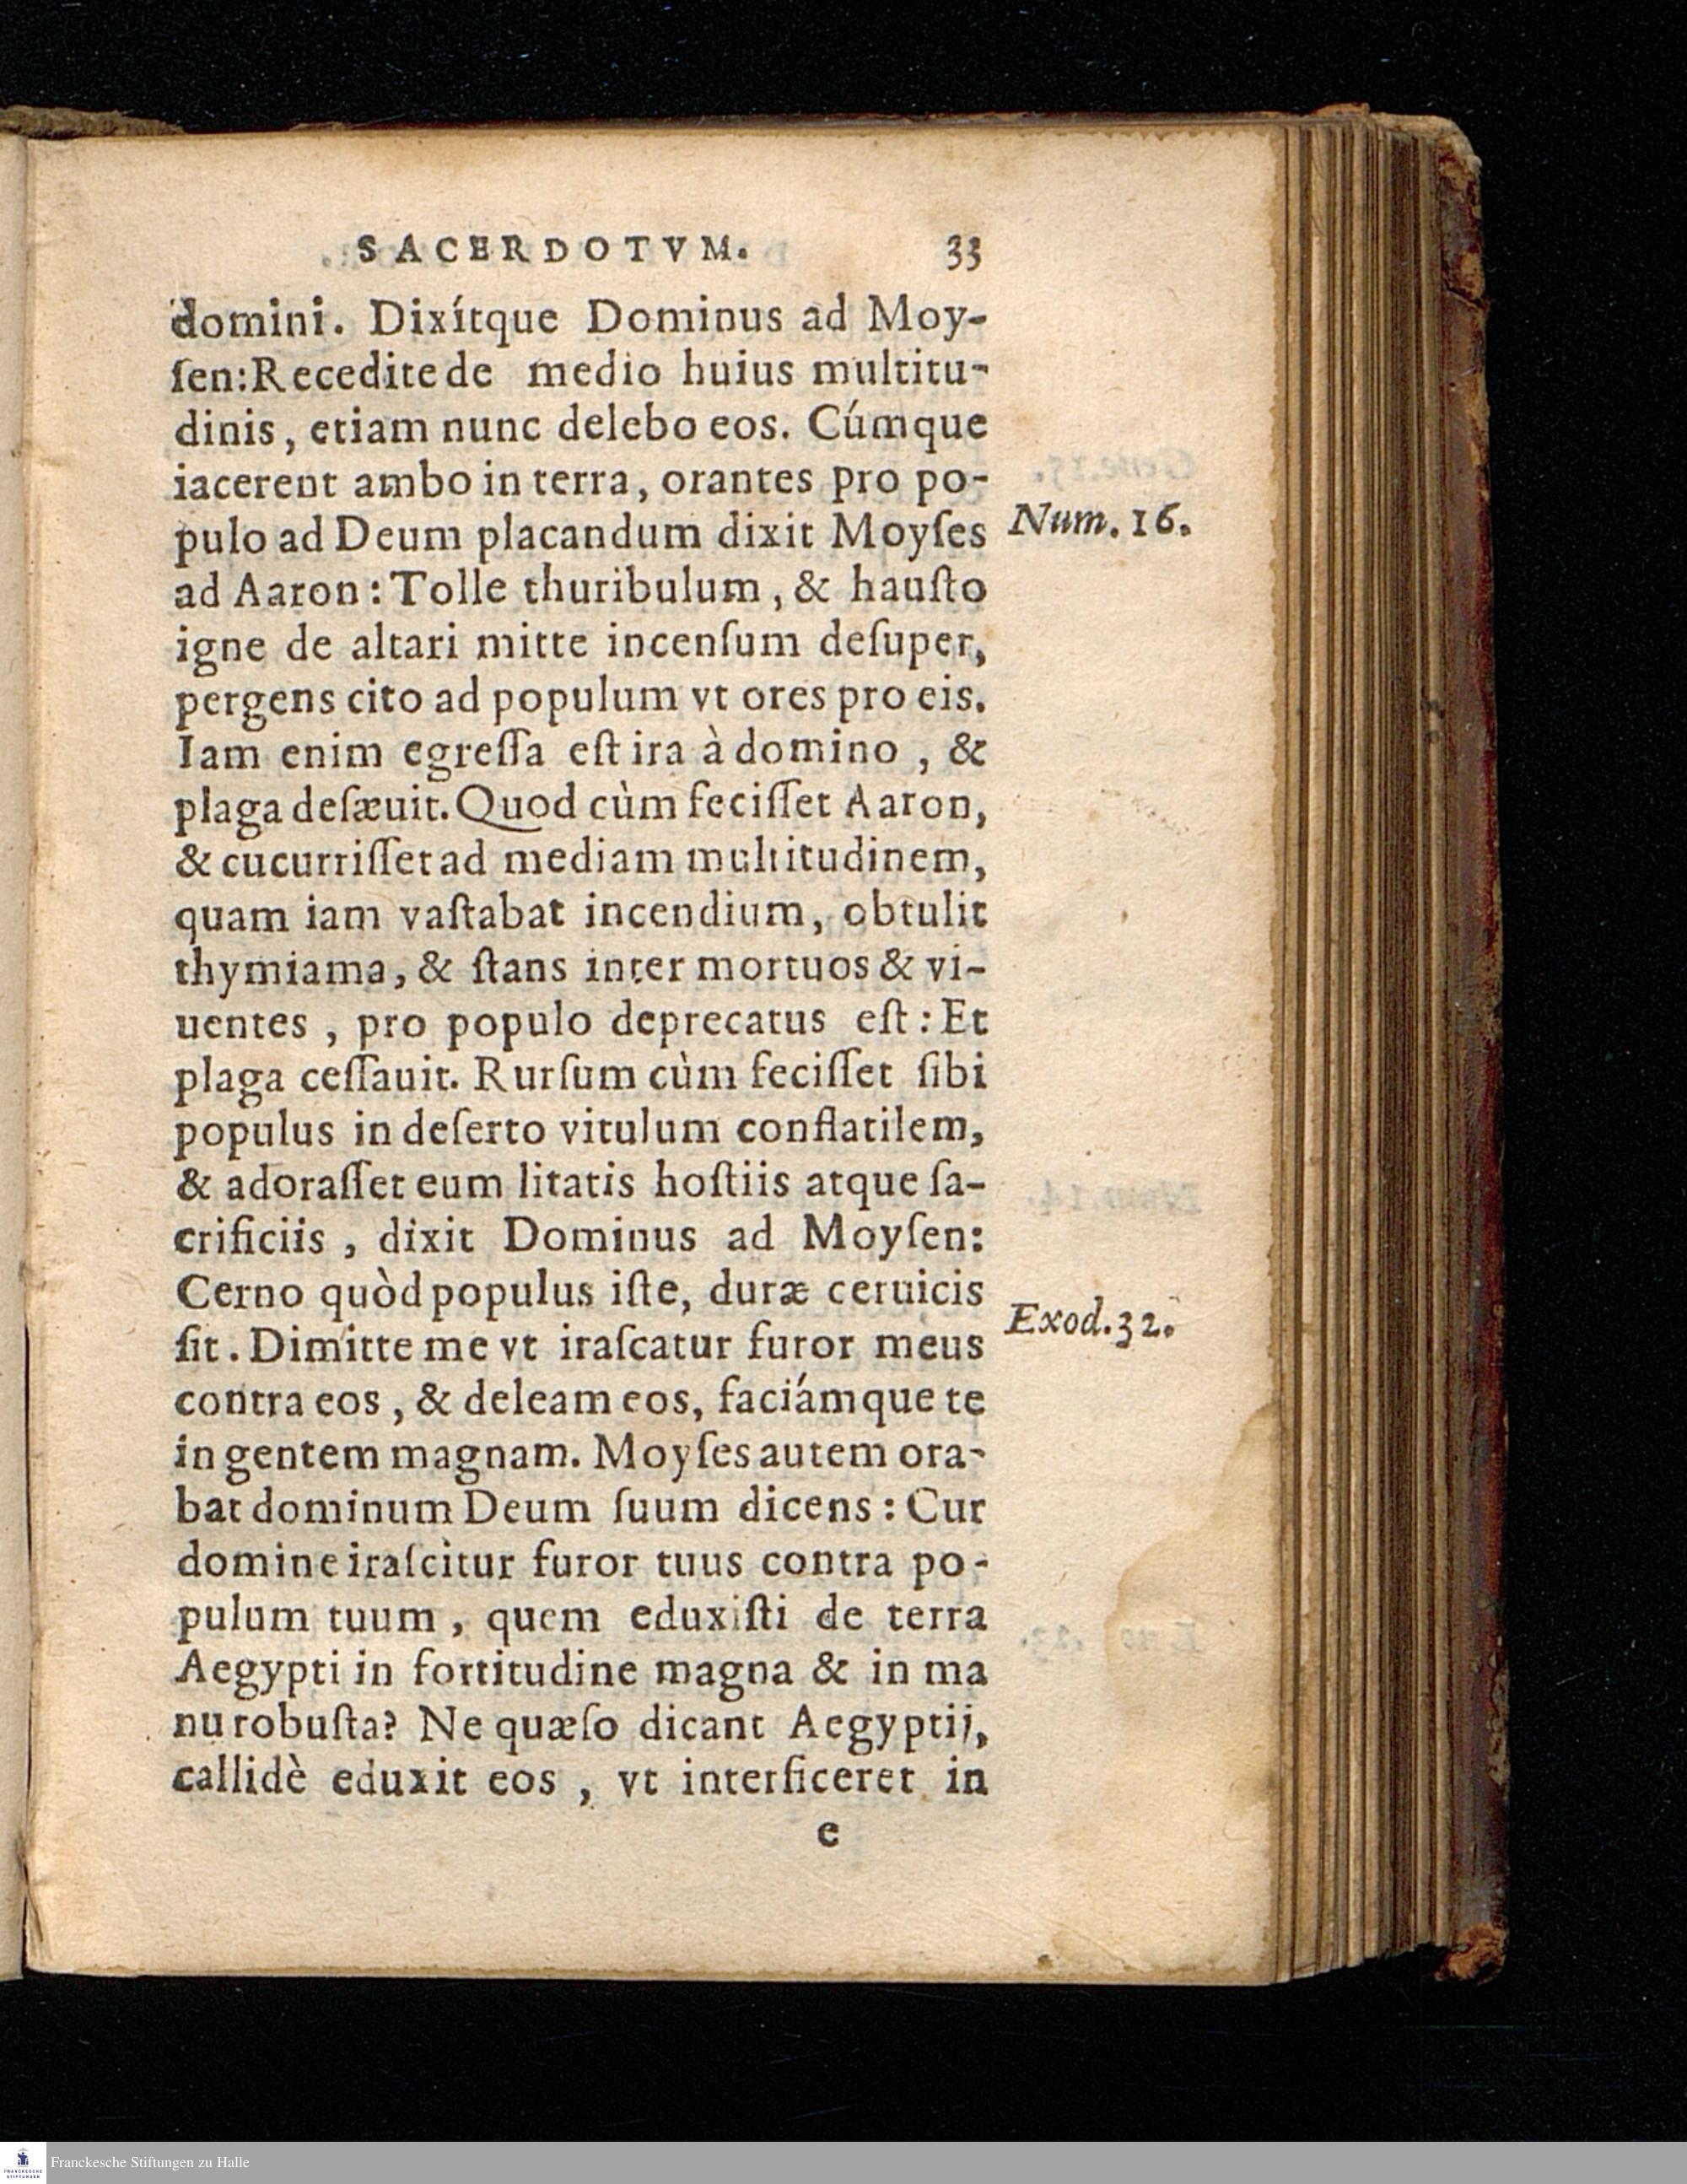 SACERDOTVM. 33
domini. Dixítque Dominus ad Moy-
ſen:Recedite de medio huius multitu-
dinis, etiam nunc delebo eos. Cúmque
iacerent ambo in terra, orantes pro po-
pulo ad Deum placandum dixit Moyſes
Num. 16.
ad Aaron: Tolle thuribulum, & hauſto
igne de altari mitte incenſum deſuper,
pergens cito ad populum vt ores pro eis.
Iam enim egreſſa eſt ira à domino , &
plaga deſæuit. Quod cùm feciſſet Aaron,
& cucurriſſet ad mediam multitudinem,
quam iam vaſtabat incendium, obtulit
thymiama, & ſtans inter mortuos & vi-
uentes , pro populo deprecatus eſt: Et
plaga ceſſauit. Rurſum cùm feciſſet ſibi
populus in deſerto vitulum conflatilem,
& adoraſſet eum litatis hoſtiis atque ſa-
crificiis , dixit Dominus ad Moyſen:
Cerno quòd populus iſte, duræ ceruicis
Exod. 32.
ſit. Dimitte me vt iraſcatur furor meus
contra eos , & deleam eos, faciámque te
in gentem magnam. Moyſes autem ora-
bat dominum Deum ſuum dicens: Cur
domine iraſcitur furor tuus contra po-
pulum tuum , quem eduxiſti de terra
Aegypti in fortitudine magna & in ma
nu robuſta? Ne quæſo dicant Aegyptij,
callidè eduxit eos , vt interficeret in
e
FRANCKESCHE
STIFTUNGEN
Franckesche Stiftungen zu Halle